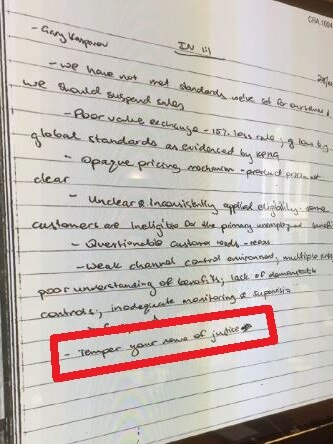 CBA.1004
- Gary Kasparov IN 1:1
- we have not met standards we've set for ourselves &
we should suspend sales
- Poor value exchange - 15% less rate
global standards as evidenced by KPMG
- opaque pricing mechanism - product not
clear
- Unclear & inconsistently applied eligibility - some
customers are ineligible for the primary unemployment benefit
- Questionable customer needs
- weak channel control environment, multiple
poor understanding of benefits, lack of demonstrable
controls, inadequate monitoring & supervision
- Temper your sense of justice